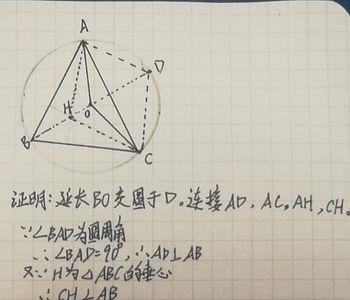 A
D
H
O
B
C
证明:延长BO交圆于D。连接AD,AC,AH,CH。
∵∠BAD为圆周角
∴∠BAD=90°,∴AD⊥AB
又∵H为△ABC的垂心
∴CH⊥AB